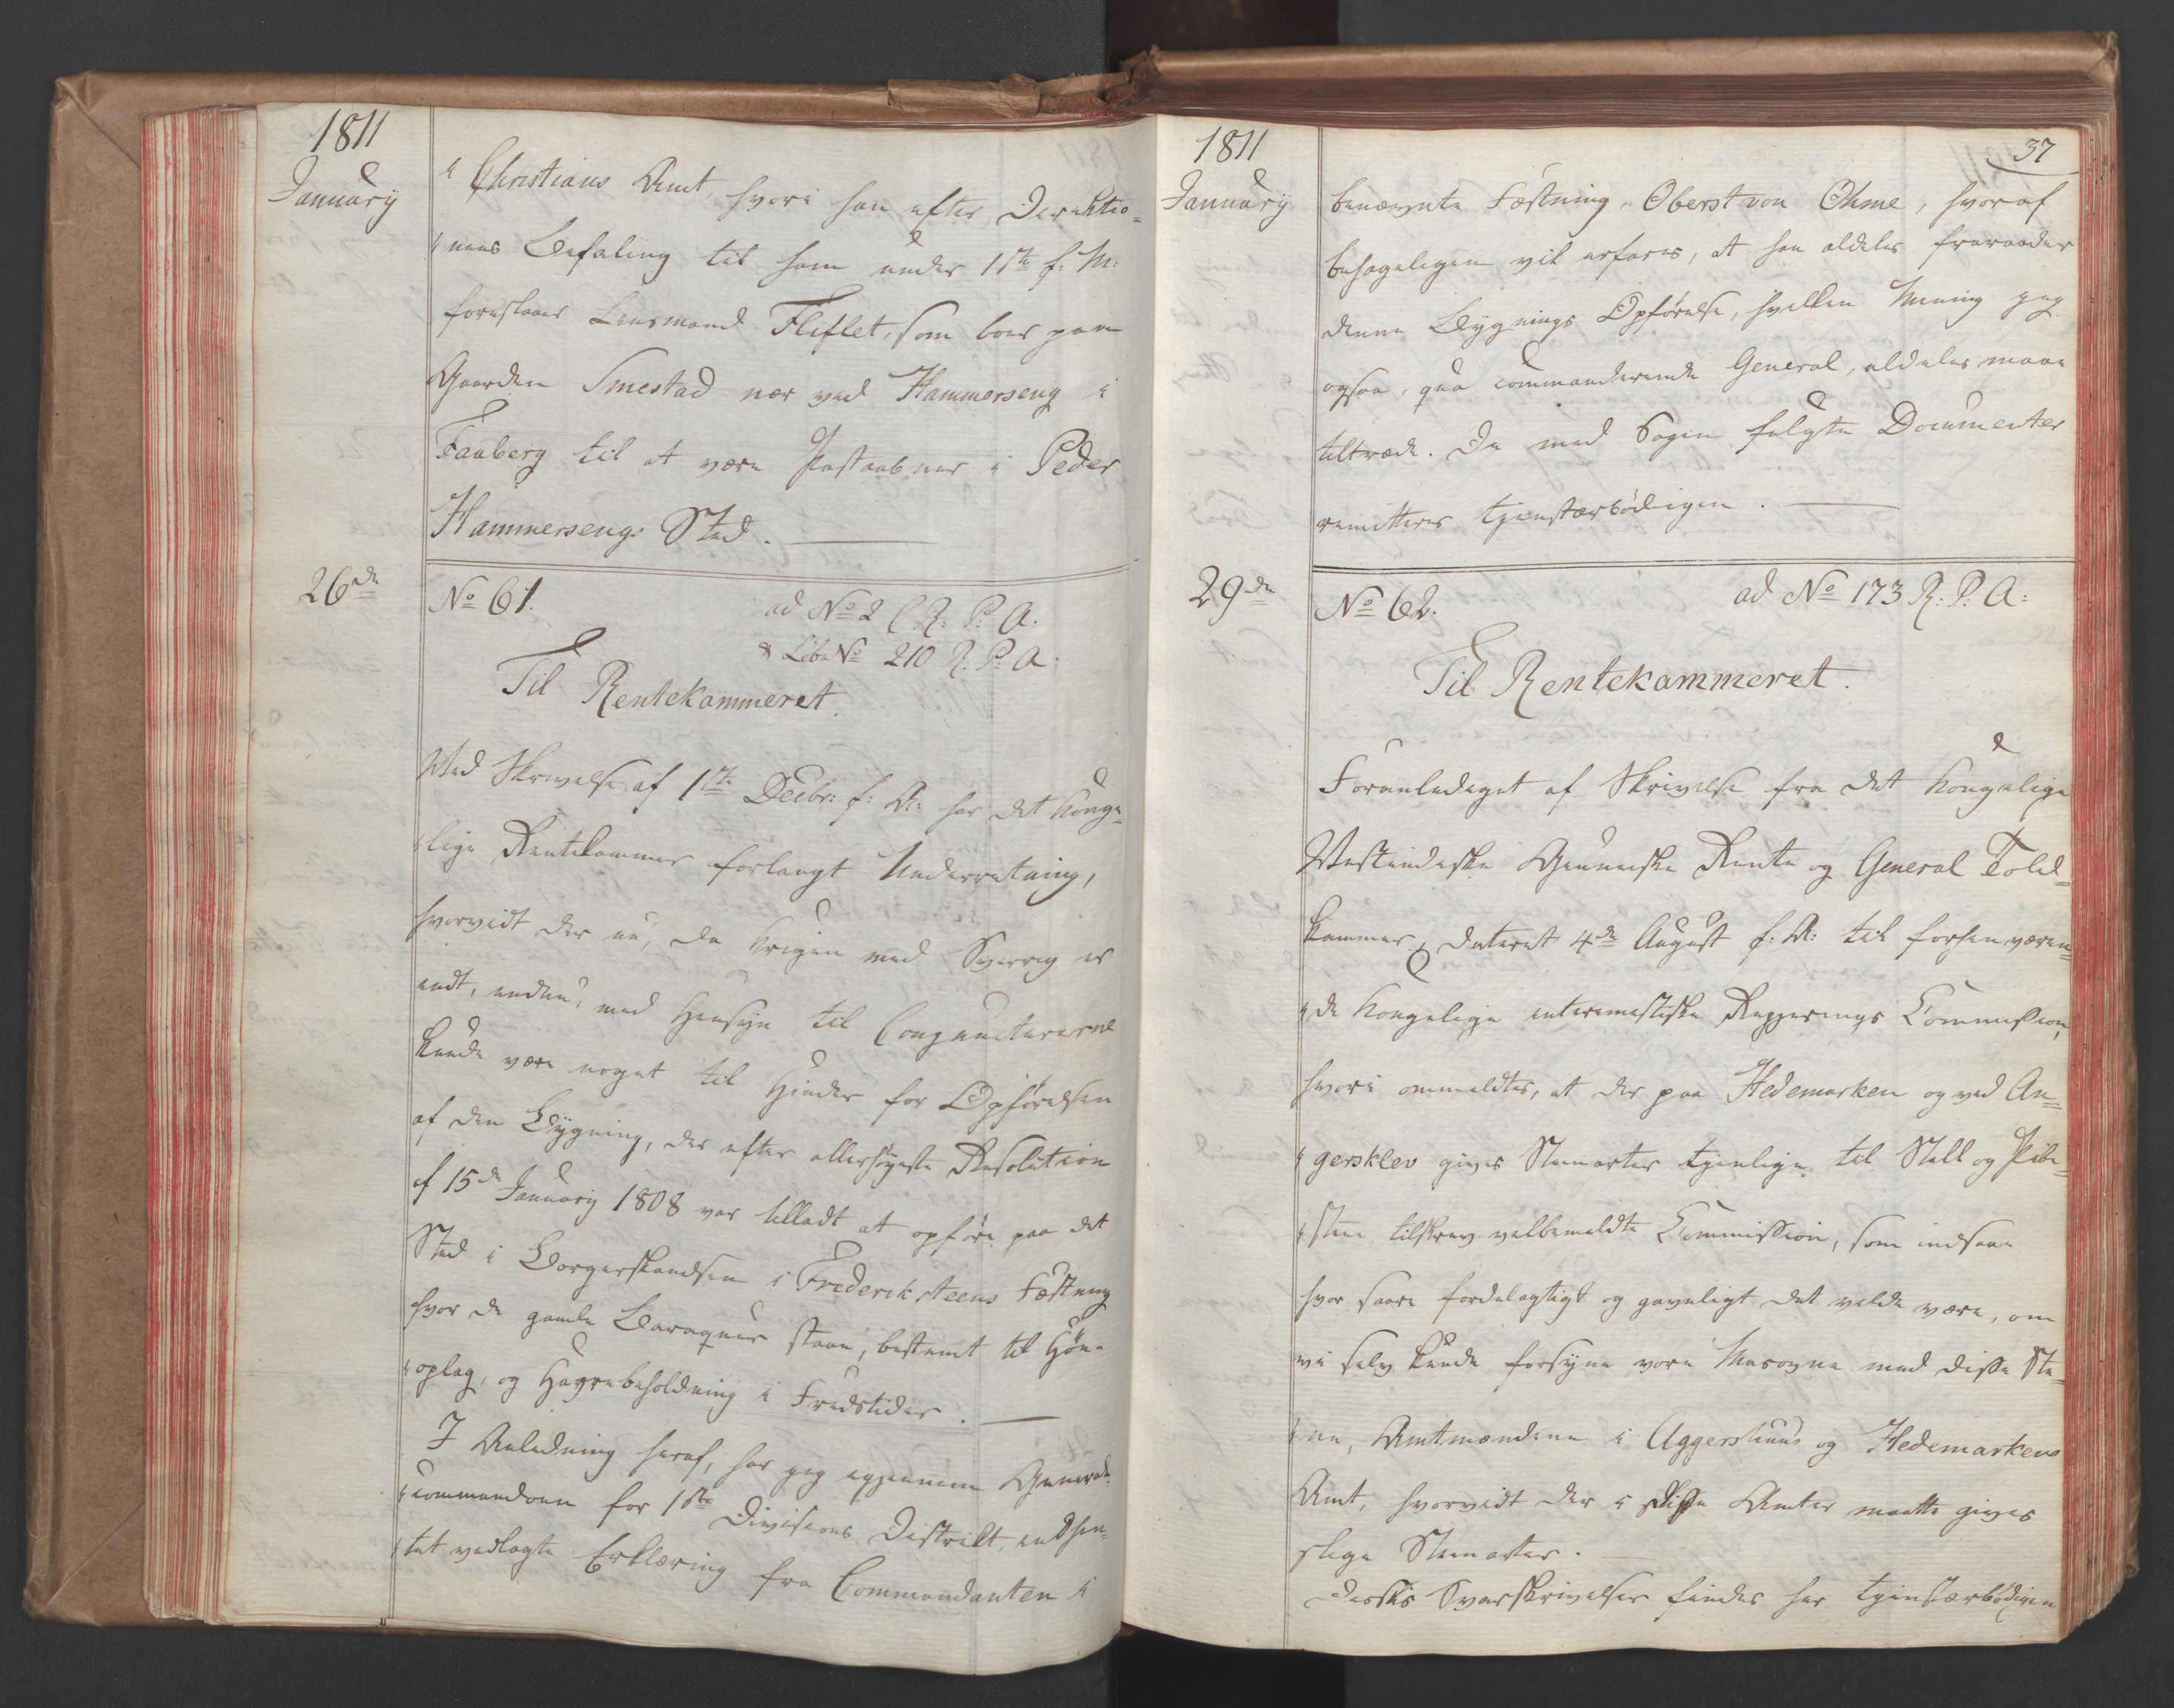 1811
January
" Christians Amt, hvori han efter Direktio-
"nens Befaling til ham under 11te f: M:
foreslaaer Lensmand Fliflet, som boer paa
Gaarden Smestad nær ved Hammerseng i
Faaberg til at være Postaabner i Peder
Hammersengs Sted.
26de
No 61.
ad No 2 C. R: P: A:
& Løbe No 210 R: P: A:
Til Rentekammeret.
Med Skrivelse af 1te Decbr: f: A: har det Konge-
"lige Rentekammer forlangt Underretning,
hvorvidt der nu, da Krigen med Sverrig er
endt, endnu, med Hensyn til Conjuncturerne
kunde være noget til Hinder for Opførelsen
af den Bygning, der efter allerhøyeste Resolution
af 15de January 1808 var tilladt at opføre paa det
Sted i Borgerskandsen i Frederiksteens Fæstning
hvor de gamle Baraquer staae, bestemt til Høe-
"oplag, og Havrebeholdning i Fredstider.
I Anledning heraf, har jeg igjennem General-
"commandoen for 1ste Divisions District, indhen-
"tet vedlagte Erklæring fra Commandanten i
1811
January
37
benævnte Fæstning, Oberst von Ohme, hvoraf
behageligen vil erfares, at han aldeles fraraader
denne Bygnings Opførelse, hvilken Mening jeg
ogsaa, qua commanderende General, aldeles maae
tiltræde. De med Sagen fulgte Documenter
remitteres tjenstærbødigen.
29de
No 62.
ad No 173 R: P: A:
Til Rentekammeret.
Foranlediget af Skrivelse fra det Kongelige
Vestindiske Guineiske Rente og General Told-
kammer, dateret 4de August f: A: til forhenværen-
"de Kongelige interimistiske Regjerings Commission,
hvori ommeldtes, at der paa Hedemarken og ved An-
"gersklev gives Steenarter tjenlige til Stell og Pibe-
"steen, tilskrev velbemeldte Commission, som indsaae
hvor saare fordelagtigt og gavnligt det vilde være, om
vi selv kunde forsyne vore Masovne med disse Ste-
"ne, Amtmændene i Aggershuus og Hedemarkens
Amt, hvorvidt der i disse Amter maatte gives
slige Steenarter.
Disses Svarskrivelser findes her tjenstærbødigen